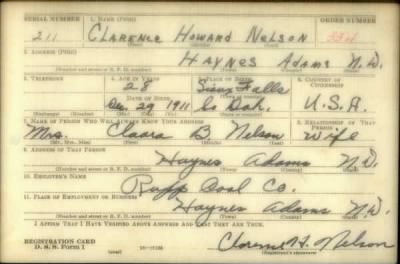 SERIAL NUMBER 1. NAME (Print) ORDER NUMBER
211 CLARENCE HOWARD NELSON
2. ADDRESS (Print)
HAYNES ADAMS N.D.
3. TELEPHONE 4. AGE IN YEARS 5. PLACE OF BIRTH 6. COUNTRY OF CITIZENSHIP
28 Sioux Falls
DATE OF BIRTH
Dec 29 1911 So Dak. U.S.A.
7. NAME OF PERSON WHO WILL ALWAYS KNOW YOUR ADDRESS 8. RELATIONSHIP OF THAT PERSON
Mrs. Clara B Nelson Wife
(Mr., Mrs., Miss) (First) (Middle) (Last)
9. ADDRESS OF THAT PERSON
Haynes Adams N.D.
(Number and street or R. F. D. number) (Town) (County) (State)
10. EMPLOYER'S NAME
Rupp Coal Co.
11. PLACE OF EMPLOYMENT OR BUSINESS
Haynes Adams N.D.
(Number and street or R. F. D. number) (Town) (County) (State)
I AFFIRM THAT I HAVE VERIFIED ABOVE ANSWERS AND THAT THEY ARE TRUE.
REGISTRATION CARD
D. S. S. Form 1
Clarence H. Nelson
(Registrant's signature)